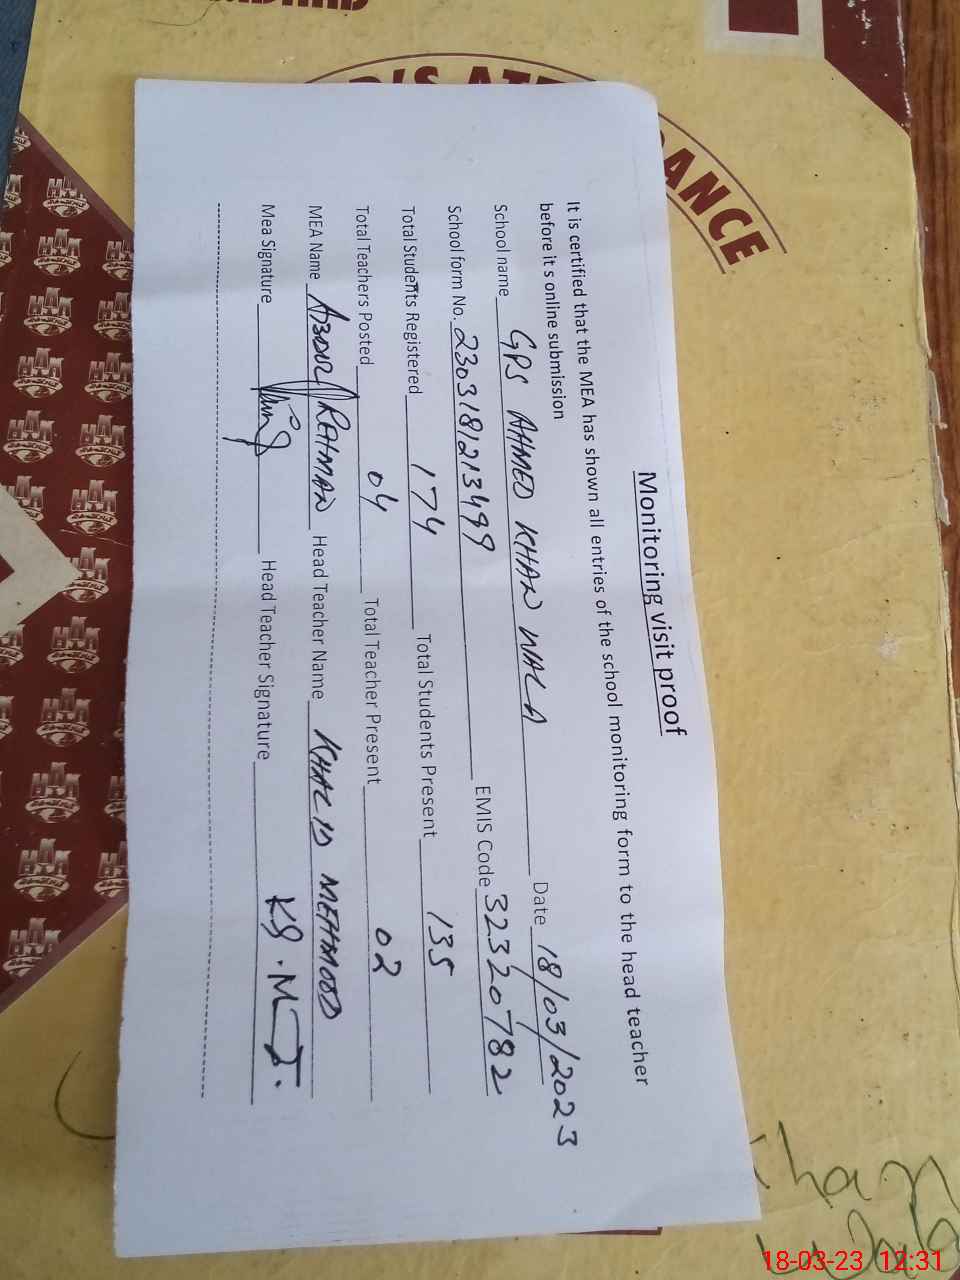 ANCE
Monitoring visit proof
It is certified that the MEA has shown all entries of the school monitoring form to the head teacher
before it s online submission
School name GPS AHMED KHAN WALA Date 18/03/2023
School form No. 2303181213499 EMIS Code 32320782
Total Students Registered 174 Total Students Present 135
Total Teachers Posted 04 Total Teacher Present 02
MEA Name ABDUL REHMAN Head Teacher Name KHALID MEHMOOD
Mea Signature Head Teacher Signature
18-03-23 12:31